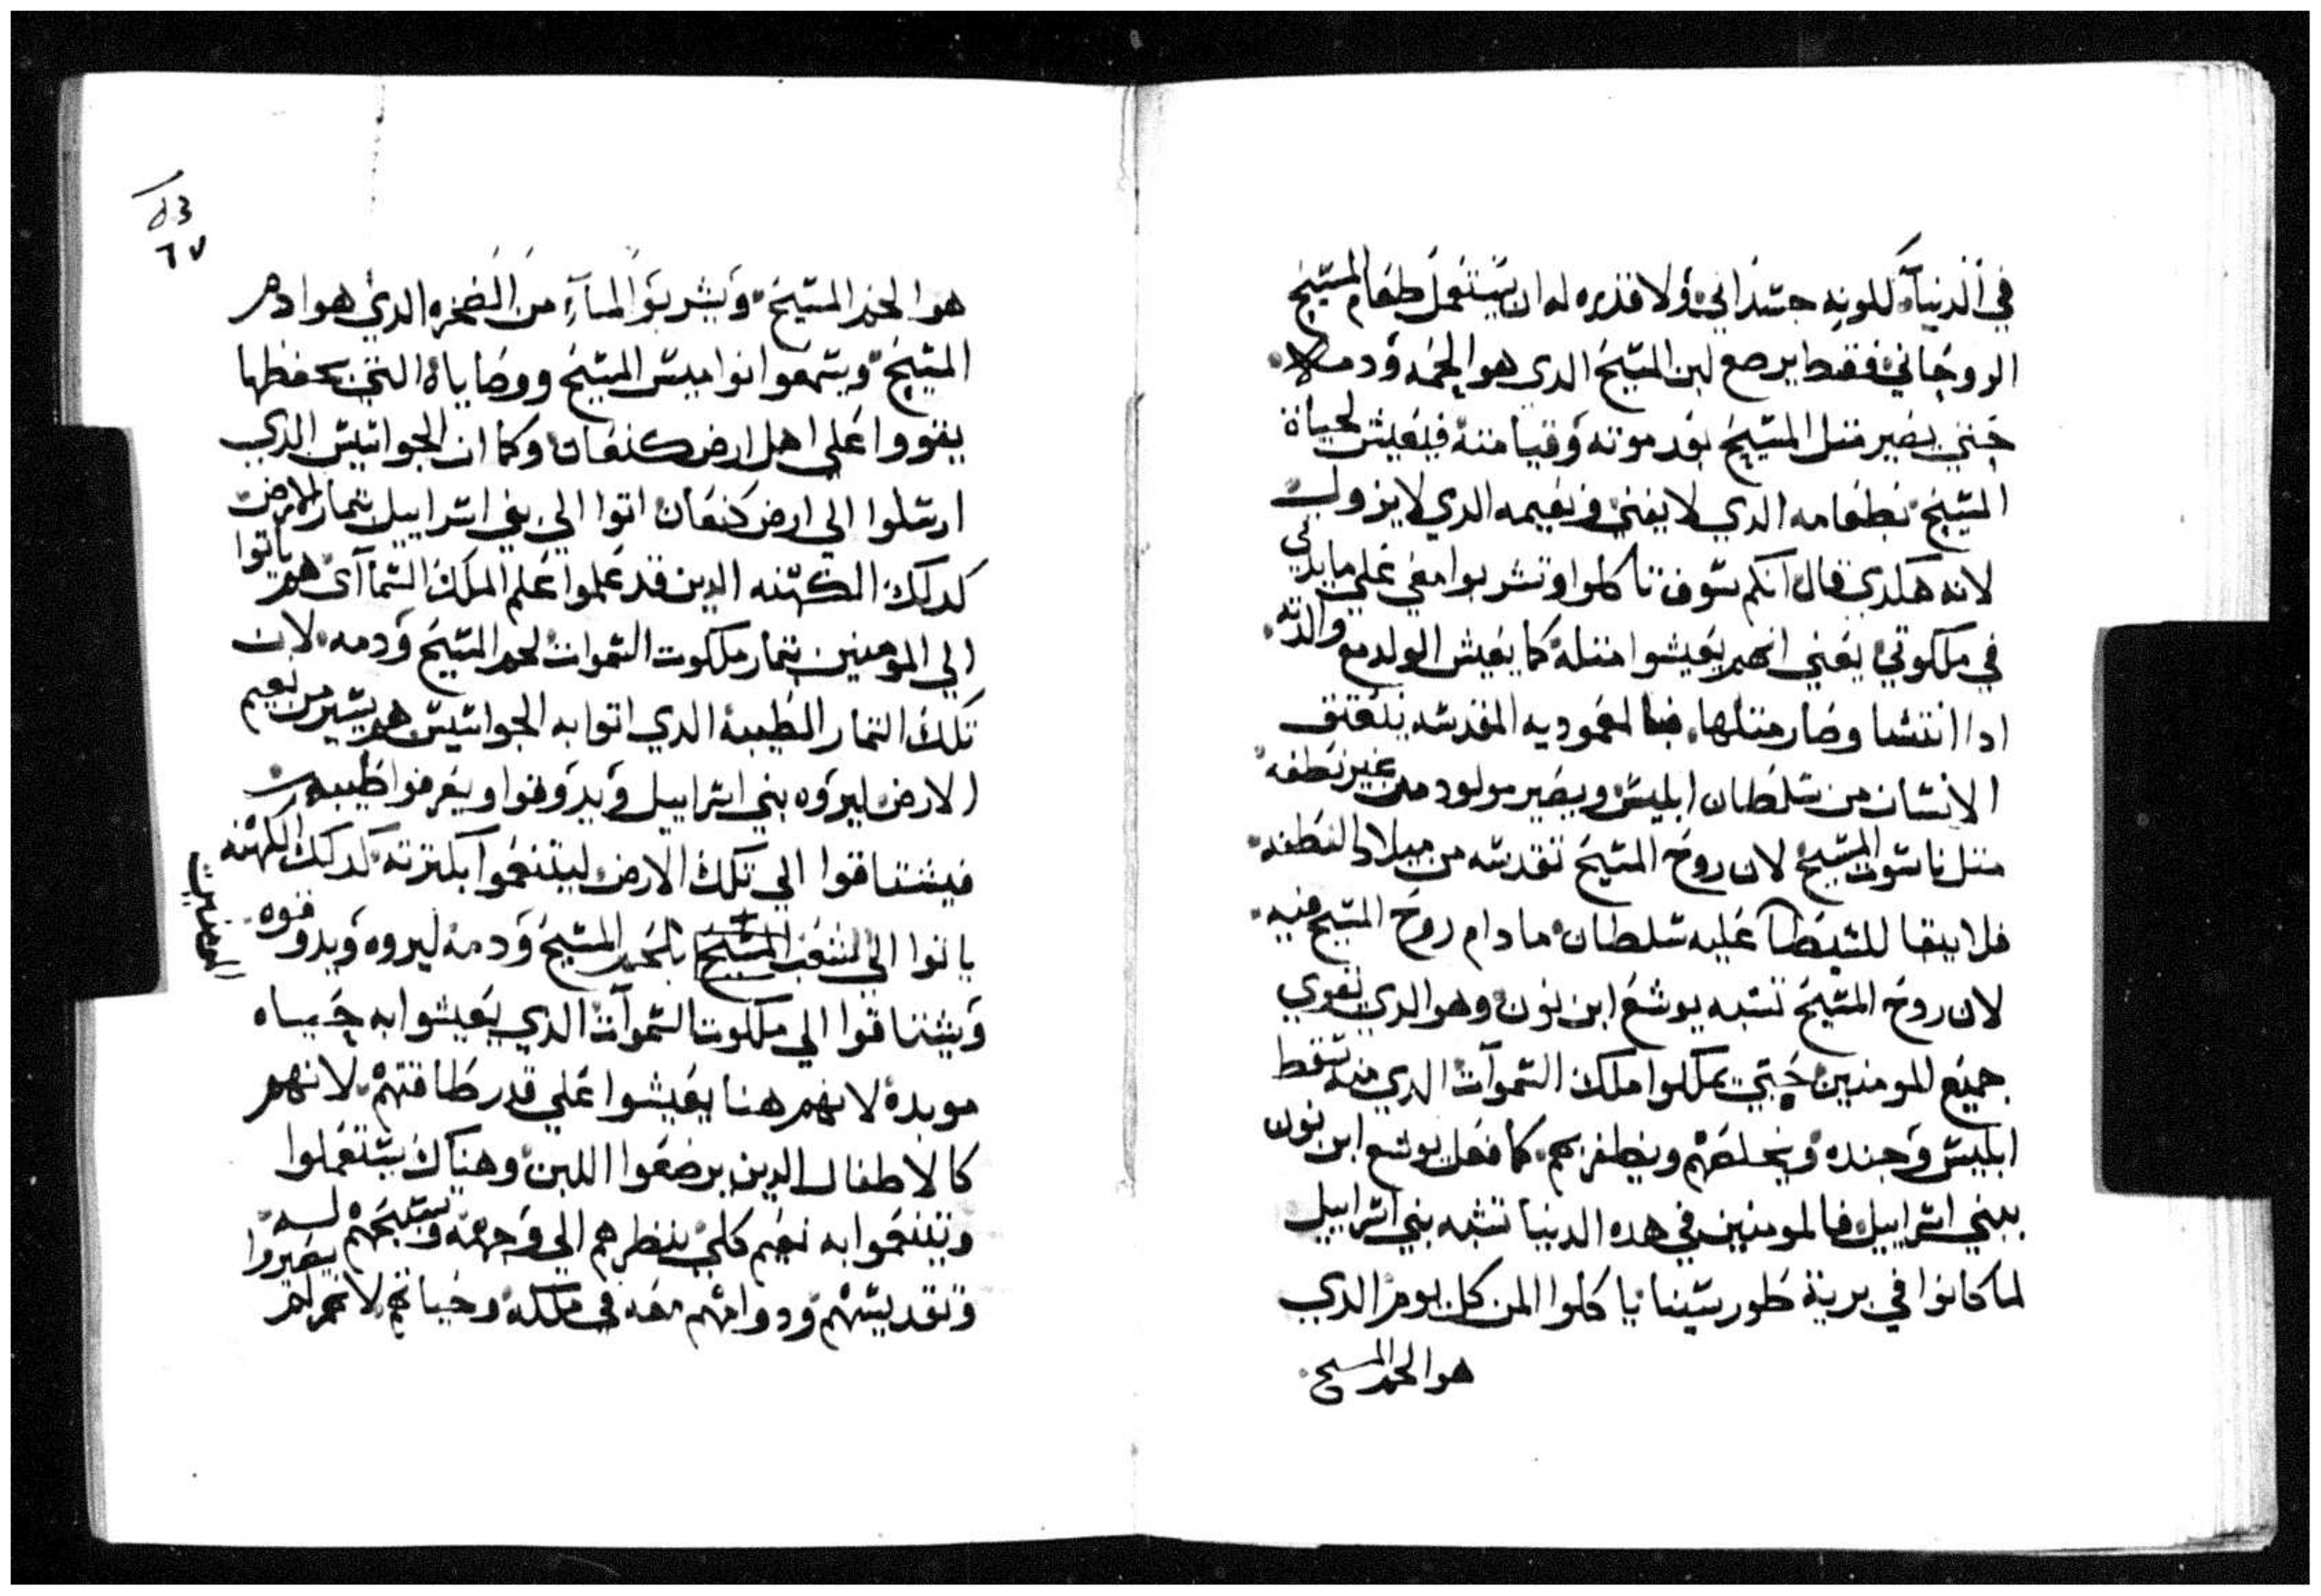 في الدنيا لكونه جسداني ولا قدره له ان يستعمل طعام المسيح
الروحاني فقط يرضع لبن المسيح الدي هو لحمه ودمه
حتي يصير متل المسيح بعد موته وقيامته فيعيش لحياة
المسيح بطعامه الدي لا يفني ونعيمه الدي لا يزول
لانه هكدي قال انكم سوف تاكلوا وتشربوا معي علي مايدتي
في ملكوتي يعني انهم يعيشوا متله كما يعيش الولد مع والدته
ادا انتشا وصار متلها فبالمعموديه المقدسه ينعتق
الانسان من سلطان ابليس ويصير مولود من غير نطفه
متل ناسوت المسيح لان روح المسيح تقدسه من ميلاد النطفه
فلا يبقا للشيطان عليه سلطان ما دام روح المسيح فيه
لان روح المسيح تشبه يوشع ابن نون وهو الدي يقوي
جميع المومنين حتي يملكوا ملك السموات الدي منه سقط
ابليس وجنده ويخلصهم ويظفر بهم كما فعل يوشع ابن نون
ببني اسراييل فالمومنين في هده الدنيا تشبه بني اسراييل
لما كانوا في برية طور سينا ياكلوا المن كل يوم الدي
هو لحم المسيح
٥٣
٦٧
هو لحم المسيح ويشربوا المآء من الصخره الدي هو دم
المسيح ويسمعوا نواميس المسيح ووصاياه التي بحفظها
يقووا علي اهل ارض كنعان وكما ان الجواسيس الدي
ارسلوا الي ارض كنعان اتوا الي بني اسراييل بتمار الارض
كدلك الكهنه الدين قد علموا علم الملك السمآآي هم ياتوا
الي المومنين بتمار ملكوت السموات لحم المسيح ودمه لان
تلك التمار الطيبة الدي اتوا به الجواسيس هم يسير من نعيم
الارض ليروه بني اسراييل ويدوقوا ويعرفوا طيبه
فيشتاقوا الي تلك الارض ليتنعموا بكترته كدلك الكهنه
ياتوا الي الشعب المسيح بلحم المسيح ودمه ليروه ويدوقوه
المومنين
ويشتاقوا الي ملكوت السموآت الدي يعيشوا به حياه
موبدة لانهم هنا يعيشوا علي قدر طاقتهم لانهم
كالاطفال الدين يرضعوا اللبن وهناك يستعملوا
ويتنعموا به نعيم كلي بنظرهم الي وجهه وتسبيحهم له
وتقديسهم ودوامهم معه في ملكه وحياتهم لانهم لم يصيروا